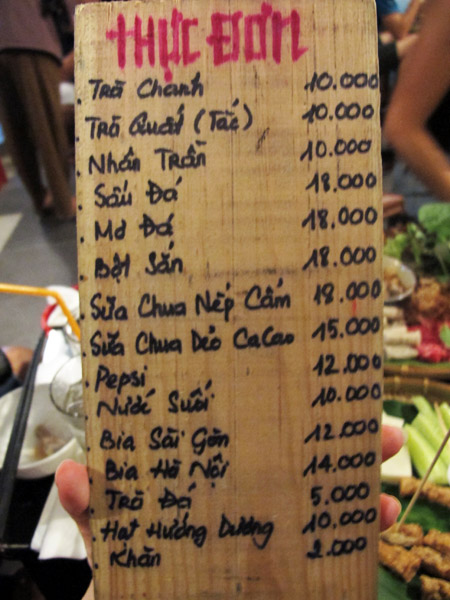 THỰC ĐƠN
Trà Chanh 10.000
Trà Quất (Tắc) 10.000
Nhân Trần 10.000
Sấu Đá 18.000
Mơ Đá 18.000
Bột Sắn 18.000
Sữa Chua Nếp Cẩm 18.000
Sữa Chua Dẻo CaCao 15.000
Pepsi 12.000
Nước Suối 10.000
Bia Sài Gòn 12.000
Bia Hà Nội 14.000
Trà Đá 5.000
Hạt Hướng Dương 10.000
Khăn 2.000